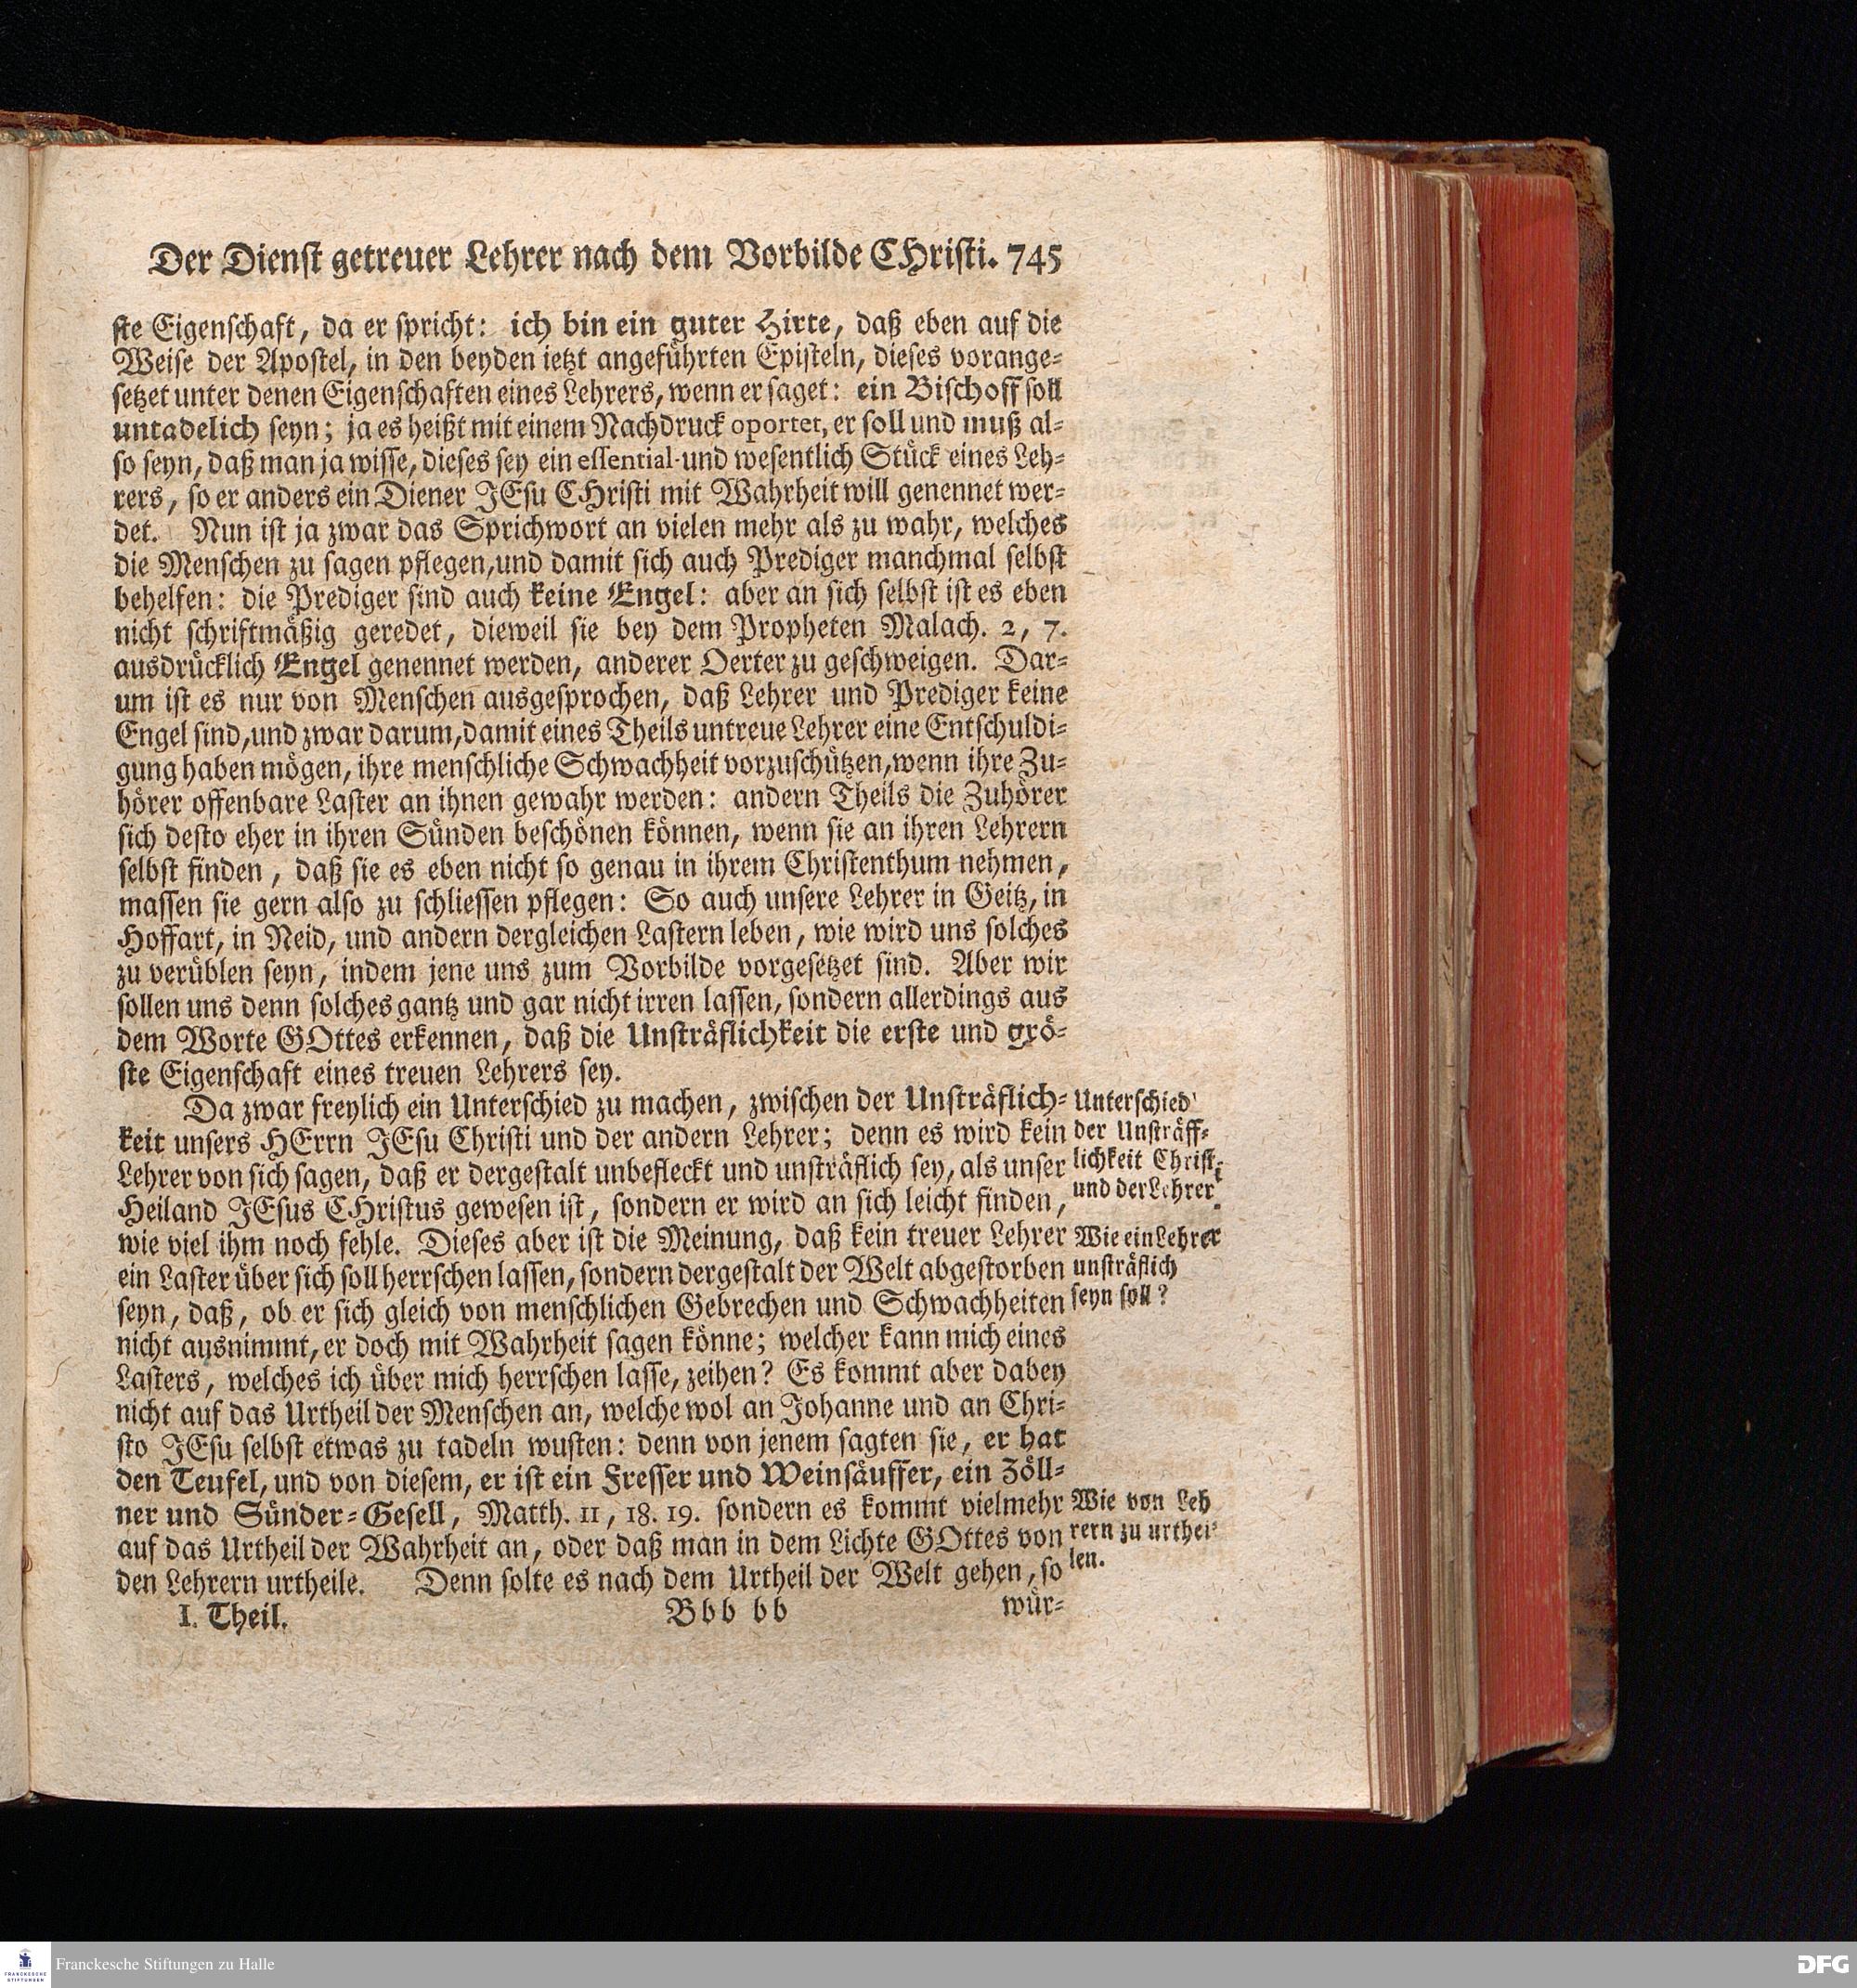 Der Dienst getreuer Lehrer nach dem Vorbilde CHristi. 745
ste Eigenschaft, da er spricht: ich bin ein guter Hirte, daß eben auf die
Weise der Apostel, in den beyden ietzt angeführten Episteln, dieses vorange-
setzet unter denen Eigenschaften eines Lehrers, wenn er saget: ein Bischoff soll
untadelich seyn; ja es heißt mit einem Nachdruck oportet, er soll und muß al-
so seyn, daß man ja wisse, dieses sey ein essential-und wesentlich Stück eines Leh-
rers, so er anders ein Diener JEsu CHristi mit Wahrheit will genennet wer-
det. Nun ist ja zwar das Sprichwort an vielen mehr als zu wahr, welches
die Menschen zu sagen pflegen, und damit sich auch Prediger manchmal selbst
behelfen: die Prediger sind auch keine Engel: aber an sich selbst ist es eben
nicht schriftmäßig geredet, dieweil sie bey dem Propheten Malach. 2, 7.
ausdrücklich Engel genennet werden, anderer Oerter zu geschweigen. Dar-
um ist es nur von Menschen ausgesprochen, daß Lehrer und Prediger keine
Engel sind, und zwar darum, damit eines Theils untreue Lehrer eine Entschuldi-
gung haben mögen, ihre menschliche Schwachheit vorzuschützen, wenn ihre Zu-
hörer offenbare Laster an ihnen gewahr werden: andern Theils die Zuhörer
sich desto eher in ihren Sünden beschönen können, wenn sie an ihren Lehrern
selbst finden, daß sie es eben nicht so genau in ihrem Christenthum nehmen,
massen sie gern also zu schliessen pflegen: So auch unsere Lehrer in Geitz, in
Hoffart, in Neid, und andern dergleichen Lastern leben, wie wird uns solches
zu verüblen seyn, indem jene uns zum Vorbilde vorgesetzet sind. Aber wir
sollen uns denn solches gantz und gar nicht irren lassen, sondern allerdings aus
dem Worte GOttes erkennen, daß die Unsträflichkeit die erste und grö-
ste Eigenschaft eines treuen Lehrers sey.
Da zwar freylich ein Unterschied zu machen, zwischen der Unsträflich-
keit unsers HErrn JEsu Christi und der andern Lehrer; denn es wird kein
Lehrer von sich sagen, daß er dergestalt unbefleckt und unsträflich sey, als unser
Heiland JEsus CHristus gewesen ist, sondern er wird an sich leicht finden,
wie viel ihm noch fehle. Dieses aber ist die Meinung, daß kein treuer Lehrer
ein Laster über sich soll herrschen lassen, sondern dergestalt der Welt abgestorben
seyn, daß, ob er sich gleich von menschlichen Gebrechen und Schwachheiten
nicht ausnimmt, er doch mit Wahrheit sagen könne; welcher kann mich eines
Lasters, welches ich über mich herrschen lasse, zeihen? Es kommt aber dabey
nicht auf das Urtheil der Menschen an, welche wol an Johanne und an Chri-
sto JEsu selbst etwas zu tadeln wusten: denn von jenem sagten sie, er hat
den Teufel, und von diesem, er ist ein Fresser und Weinsäuffer, ein Zöll-
ner und Sünder-Gesell, Matth. 11, 18. 19. sondern es kommt vielmehr
auf das Urtheil der Wahrheit an, oder daß man in dem Lichte GOttes von
den Lehrern urtheile. Denn solte es nach dem Urtheil der Welt gehen, so
I. Theil. Bbb bb wür-
Unterschied
der Unsträff-
lichkeit Christ,
und der Lehrer.
Wie ein Lehrer
unsträflich
seyn soll?
Wie von Leh
rern zu urthei-
len.
FRANCKESCHE
STIFTUNGEN
Franckesche Stiftungen zu Halle
DFG